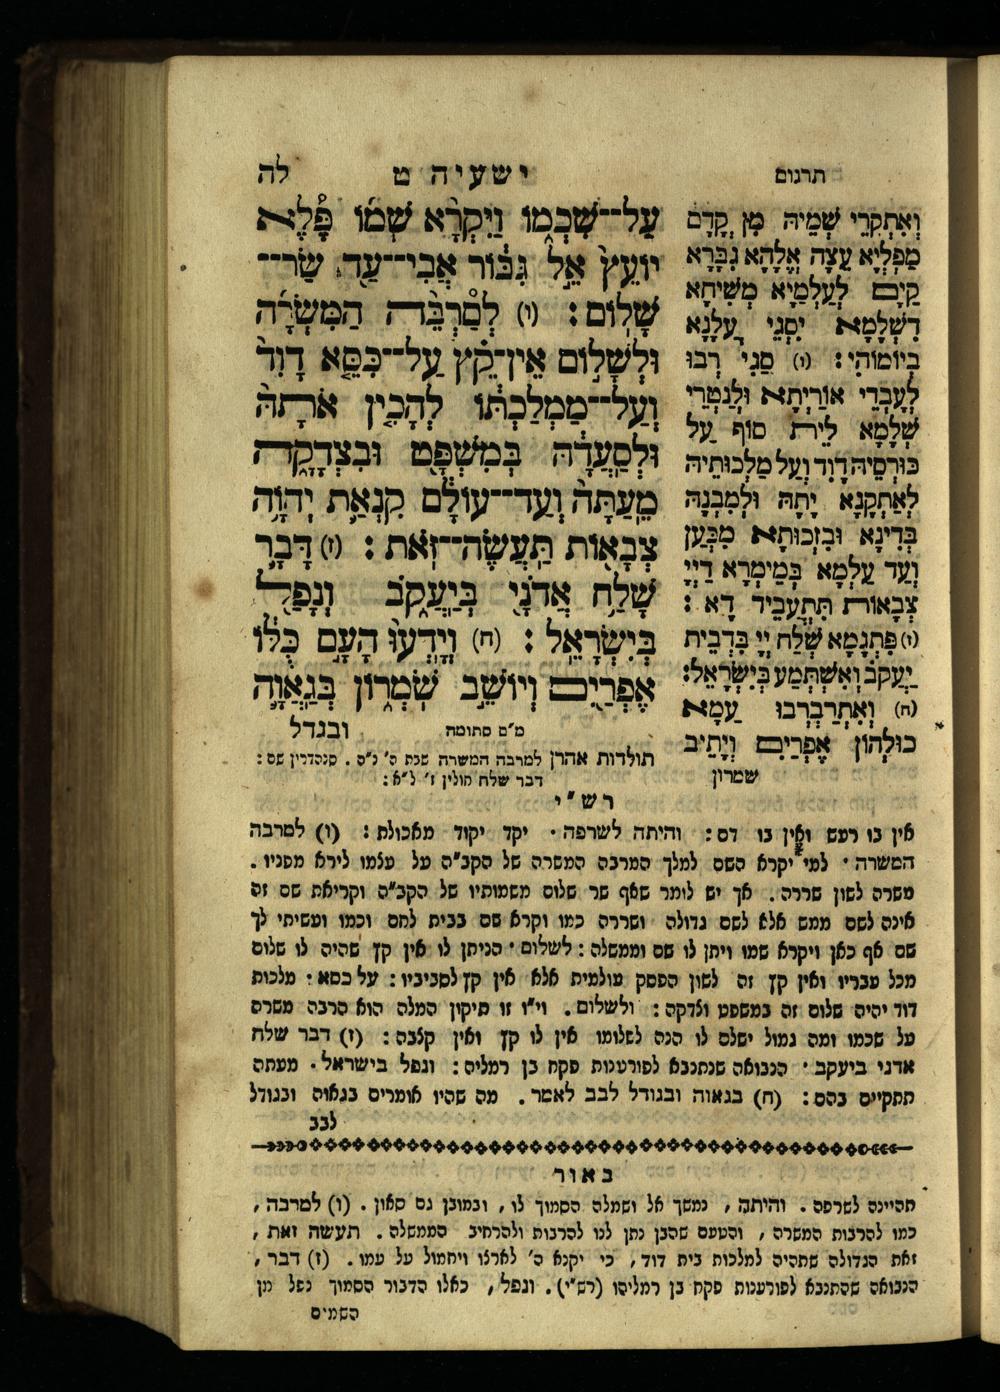 תרגום
ישעיה ט
לה
וְאִתְקְרֵי שְׁמֵיהּ מִן קֳדָם
מַפְלֵיָא עֵצָה אֱלָהָא גִבָּרָא
קַיָים לְעָלְמַיָא מְשִׁיחָא
דִשְׁלָמָא יִסְגֵי עֲלָנָא
בְיוֹמוֹהִי׃ (ו) סַגִי רְבוּ
לְעָבְדֵי אוֹרַיְתָא וּלְנַטְרֵי
שְׁלָמָא לֵית סוֹף עַל
כּוּרְסֵיהּ דָוִד וְעַל מַלְכוּתֵיהּ
לְאַתְקָנָא יָתָהּ וּלְמִבְנָהּ
בְּדִינָא וּבִזְכוּתָא מִכְּעַן
וְעַד עָלְמָא בְּמֵימְרָא דַיְיָ
צְבָאוֹת תִּתְעֲבֵיד דָא׃
(ז) פִּתְגָמָא שְׁלַח יְיָ בִּדְבֵית
יַעֲקֹב וְאִשְׁתְּמַע בְּיִשְׂרָאֵל׃
(ח) וְאִתְרַבְרְבוּ עַמָא
כוּלְהוֹן אֶפְרַיִם וְיָתֵיב
שמרון
עַל־שִׁכְמ֑וֹ וַיִּקְרָ֨א שְׁמ֜וֹ פֶּ֠לֶא
יוֹעֵץ֙ אֵ֣ל גִּבּ֔וֹר אֲבִי־עַ֖ד שַׂר־
שָׁלֽוֹם׃ (ו) לְםרְבֵּ֨ה הַמִּשְׂרָ֜ה
וּלְשָׁל֣וֹם אֵֽין־קֵ֗ץ עַל־כִּסֵּ֤א דָוִד֙
וְעַל־מַמְלַכְתּ֔וֹ לְהָכִ֤ין אֹתָהּ֙
וּֽלְסַעֲדָ֔הּ בְּמִשְׁפָּ֖ט וּבִצְדָקָ֑ה
מֵעַתָּה֙ וְעַד־עוֹלָ֔ם קִנְאַ֛ת יְהוָ֥ה
צְבָא֖וֹת תַּעֲשֶׂה־זֹּֽאת׃ (ז) דָּבָ֛ר
שָׁלַ֥ח אֲדֹנָ֖י בְּיַעֲקֹ֑ב וְנָפַ֖ל
בְּיִשְׂרָאֵֽל׃ (ח) וְיָדְעוּ֙ הָעָ֣ם כֻּלּ֔וֹ
אֶפְרַ֖יִם וְיוֹשֵׁ֣ב שֹׁמְר֑וֹן בְּגַאֲוָ֛ה
מ״ם סתומה ובגדל
תולדות אהרן למרבה המשרה שבת ה׳ נ״ה. סנהדרין שם:
דבר שלח חולין ז׳ ל״א:
רש״י
אין בו רעש ואין בו דם: והיתה לשרפה. יקד יקוד מאכולת: (ו) לםרבה
המשרה. למי יקרא השם למלך המרבה המשרה של הקב״ה על עצמו לירא מפניו.
משרה לשון שררה. אך יש לומר שאף שר שלום משמותיו של הקב״ה וקריאת שם זה
אינה לשם ממש אלא לשם גדולה ושררה כמו וקרא שם בבית לחם וכמו ועשיתי לך
שם אף כאן ויקרא שמו ויתן לו שם וממשלה: לשלום. הניתן לו אין קץ שהיה לו שלום
מכל עבריו ואין קץ זה לשון הפסק עולמית אלא אין קץ לסביביו: על כסא. מלכות
דוד יהיה שלום זה במשפט וצדקה: ולשלום. וי״ו זו תיקון המלה הוא הרבה משרה
על שכמו ומה גמול ישלם לו הנה לשלומו אין לו קץ ואין קצבה: (ז) דבר שלח
אדני ביעקב. הנבואה שנתנבא לפורענות פקח בן רמליה: ונפל בישראל. מעתה
תתקיים בהם: (ח) בגאוה ובגודל לבב לאמר. מה שהיו אומרים בגאוה ובגודל
לבב
באור
תהיינה לשרפה. והיתה, נמשך אל ושמלה הסמוך לו, ובמובן גם סאון. (ו) לםרבה,
כמו להרבות המשרה, והטעם שהבן נתן לנו להרבות ולהרחיב הממשלה. תעשה זאת,
זאת הגדולה שתהיה למלכות בית דוד, כי יקנא ה׳ לארצו ויחמול על עמו. (ז) דבר,
הנבואה שהתנבא לפורענות פקח בן רמליהו (רש״י). ונפל, כאלו הדבור הסמוך נפל מן
השמים